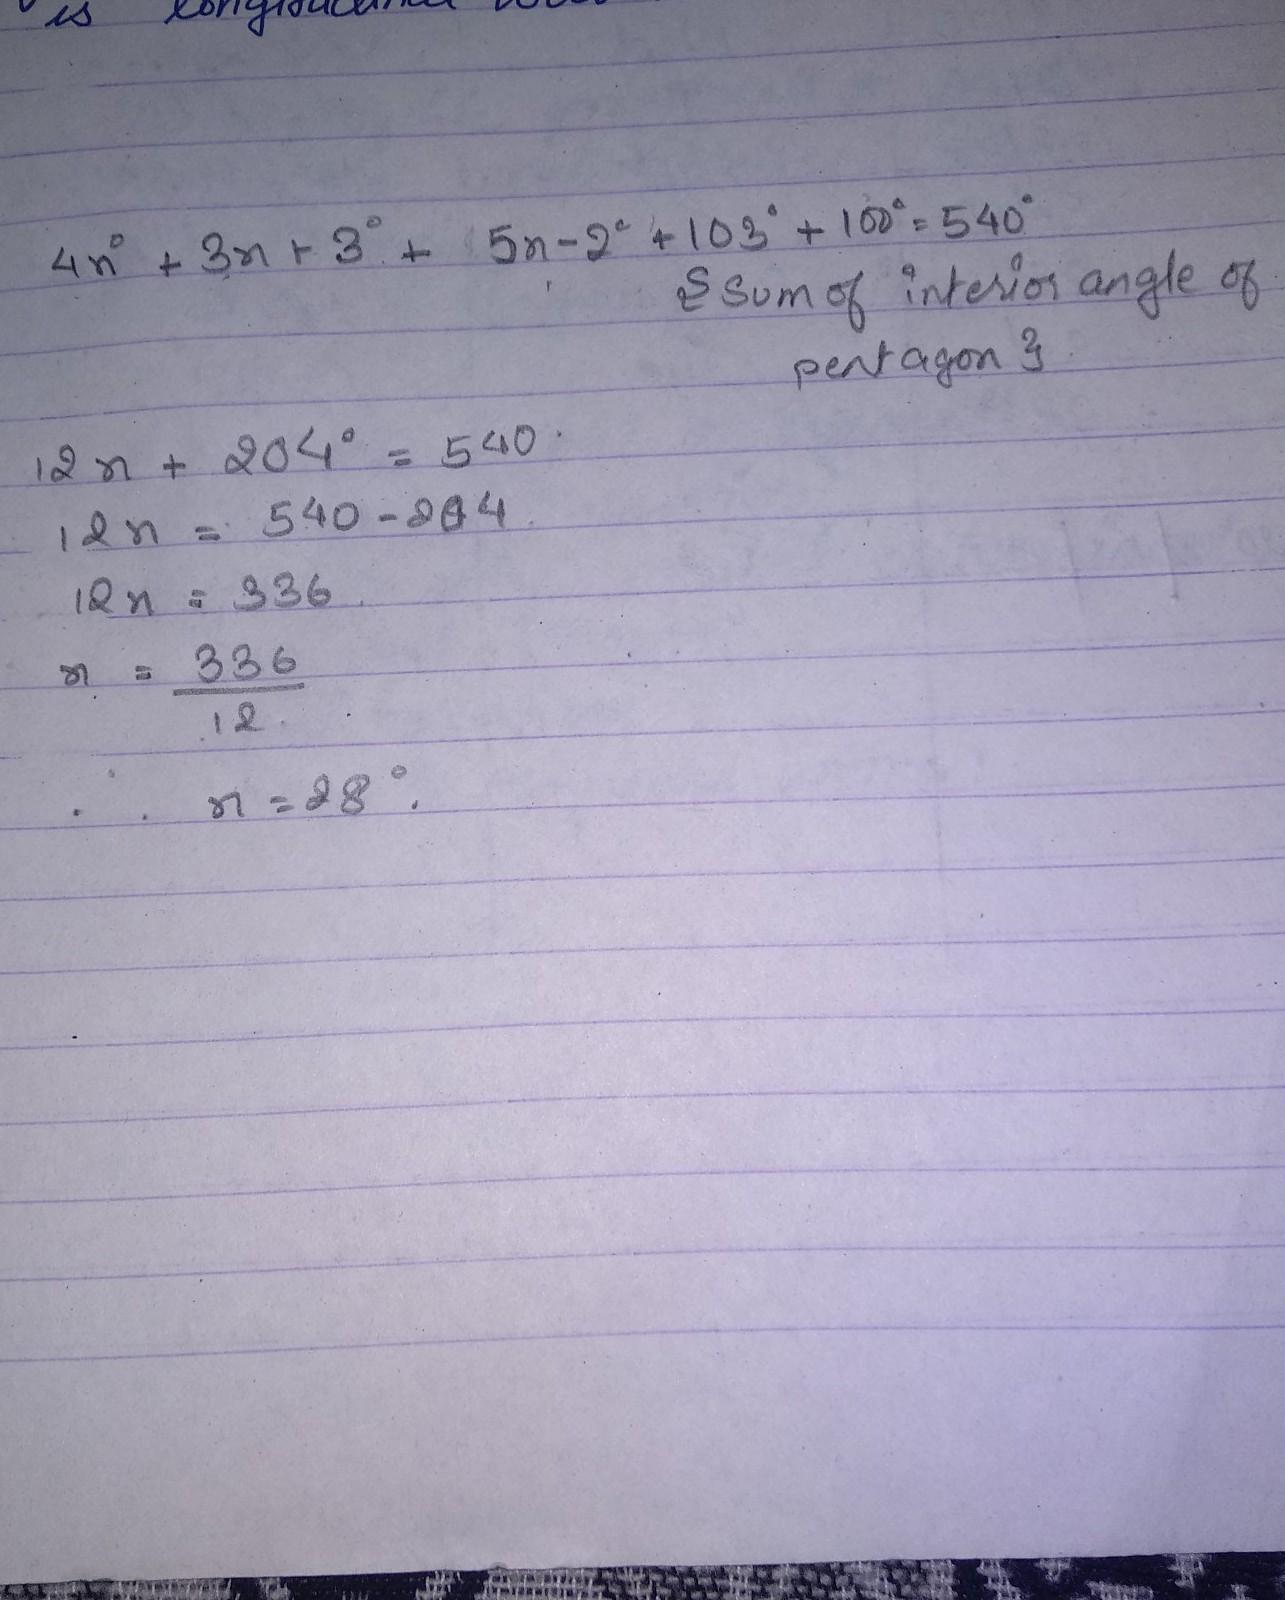 is longitudinal
4x° + 3x + 3° + 5x - 2° + 103° + 100° = 540°
{ Sum of interior angle of
pentagon }
12x + 204° = 540
12x = 540 - 204
12x = 336
x = 336
12
∴ x = 28°.